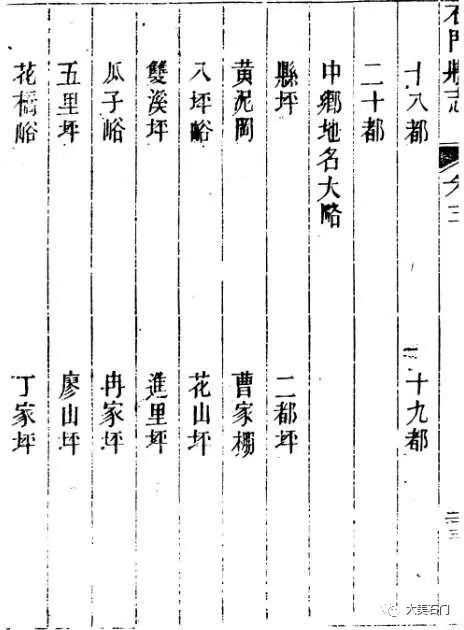 石門縣志
卷三
十八都
十九都
二十都
中鄉地名大略
縣坪
二都坪
黄泥岡
曹家棚
八坪峪
花山坪
雙溪坪
進里坪
瓜子峪
冉家坪
五里坪
廖山坪
花橋峪
丁家坪
大美石门